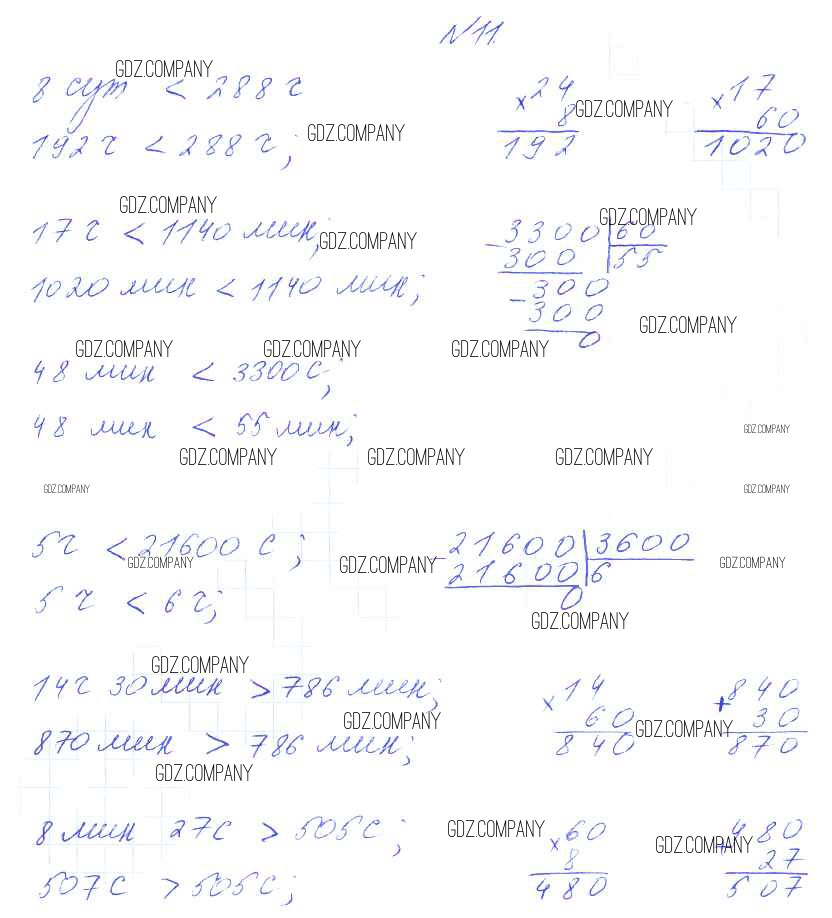 №11.
GDZ.COMPANY
8 сут < 288 ч
192 ч < 288 ч;
× 24
8
192
GDZ.COMPANY
× 17
60
1020
GDZ.COMPANY
GDZ.COMPANY
17 ч < 1140 мин;
GDZ.COMPANY
1020 мин < 1140 мин;
GDZ.COMPANY
− 3300 | 60
300 | 55
− 300
300
0
GDZ.COMPANY
GDZ.COMPANY GDZ.COMPANY GDZ.COMPANY
48 мин < 3300 с;
48 мин < 55 мин;
GDZ.COMPANY
GDZ.COMPANY GDZ.COMPANY GDZ.COMPANY
GDZ.COMPANY GDZ.COMPANY
5 ч < 21600 с;
GDZ.COMPANY
5 ч < 6 ч;
GDZ.COMPANY
− 21600 | 3600
21600 | 6
0
GDZ.COMPANY
GDZ.COMPANY
GDZ.COMPANY
14 ч 30 мин > 786 мин;
GDZ.COMPANY
870 мин > 786 мин;
GDZ.COMPANY
× 14
60
840
GDZ.COMPANY
+ 840
30
870
8 мин 27 с > 505 с;
507 с > 505 с;
GDZ.COMPANY
× 60
8
480
GDZ.COMPANY
+ 480
27
507